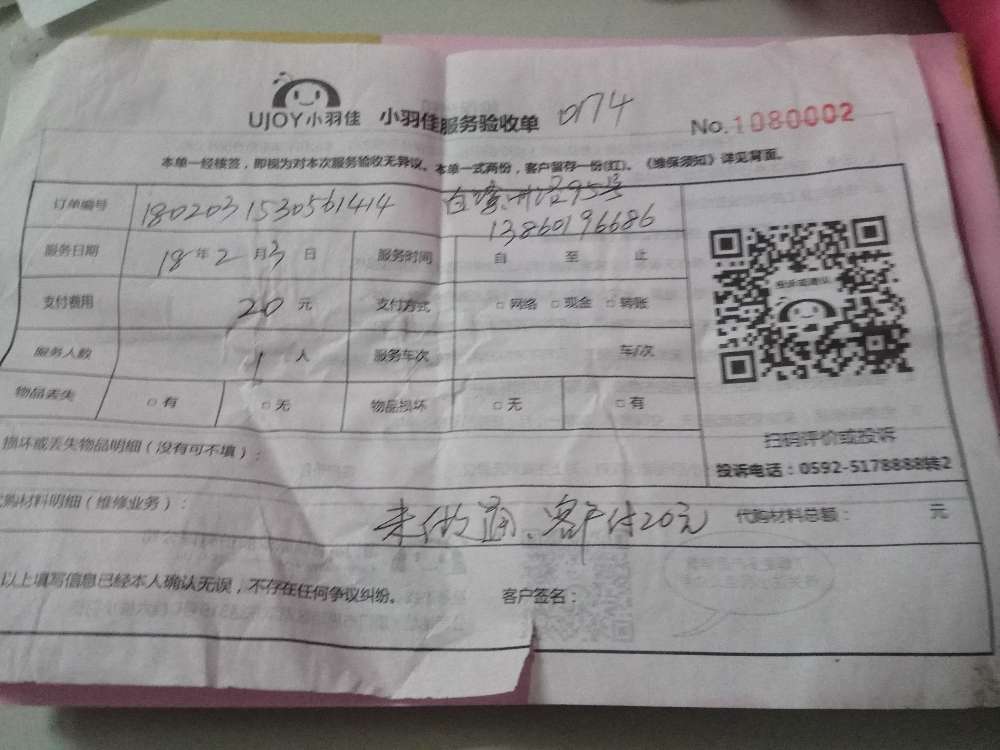 UJOY小羽佳 小羽佳服务验收单 0174 No.1080002
本单一经核签，即视为对本次服务验收无异议。本单一式两份，客户留存一份(红)。《维保须知》详见背面。
订单编号 1802031530561414 95号
13860196686
服务日期 18年2月3日 服务时间 自 至 止
支付费用 20元 支付方式 □网络 □现金 □转账
服务人数 1人 服务车次 车/次
物品丢失 □有 □无 物品损坏 □无 □有
扫码评价或投诉
投诉电话：0592-5178888转2
损坏或丢失物品明细（没有可不填）：
代购材料明细（维修业务）：
未做通、客户付20元 代购材料总额： 元
以上填写信息已经本人确认无误，不存在任何争议纠纷。 客户签名：